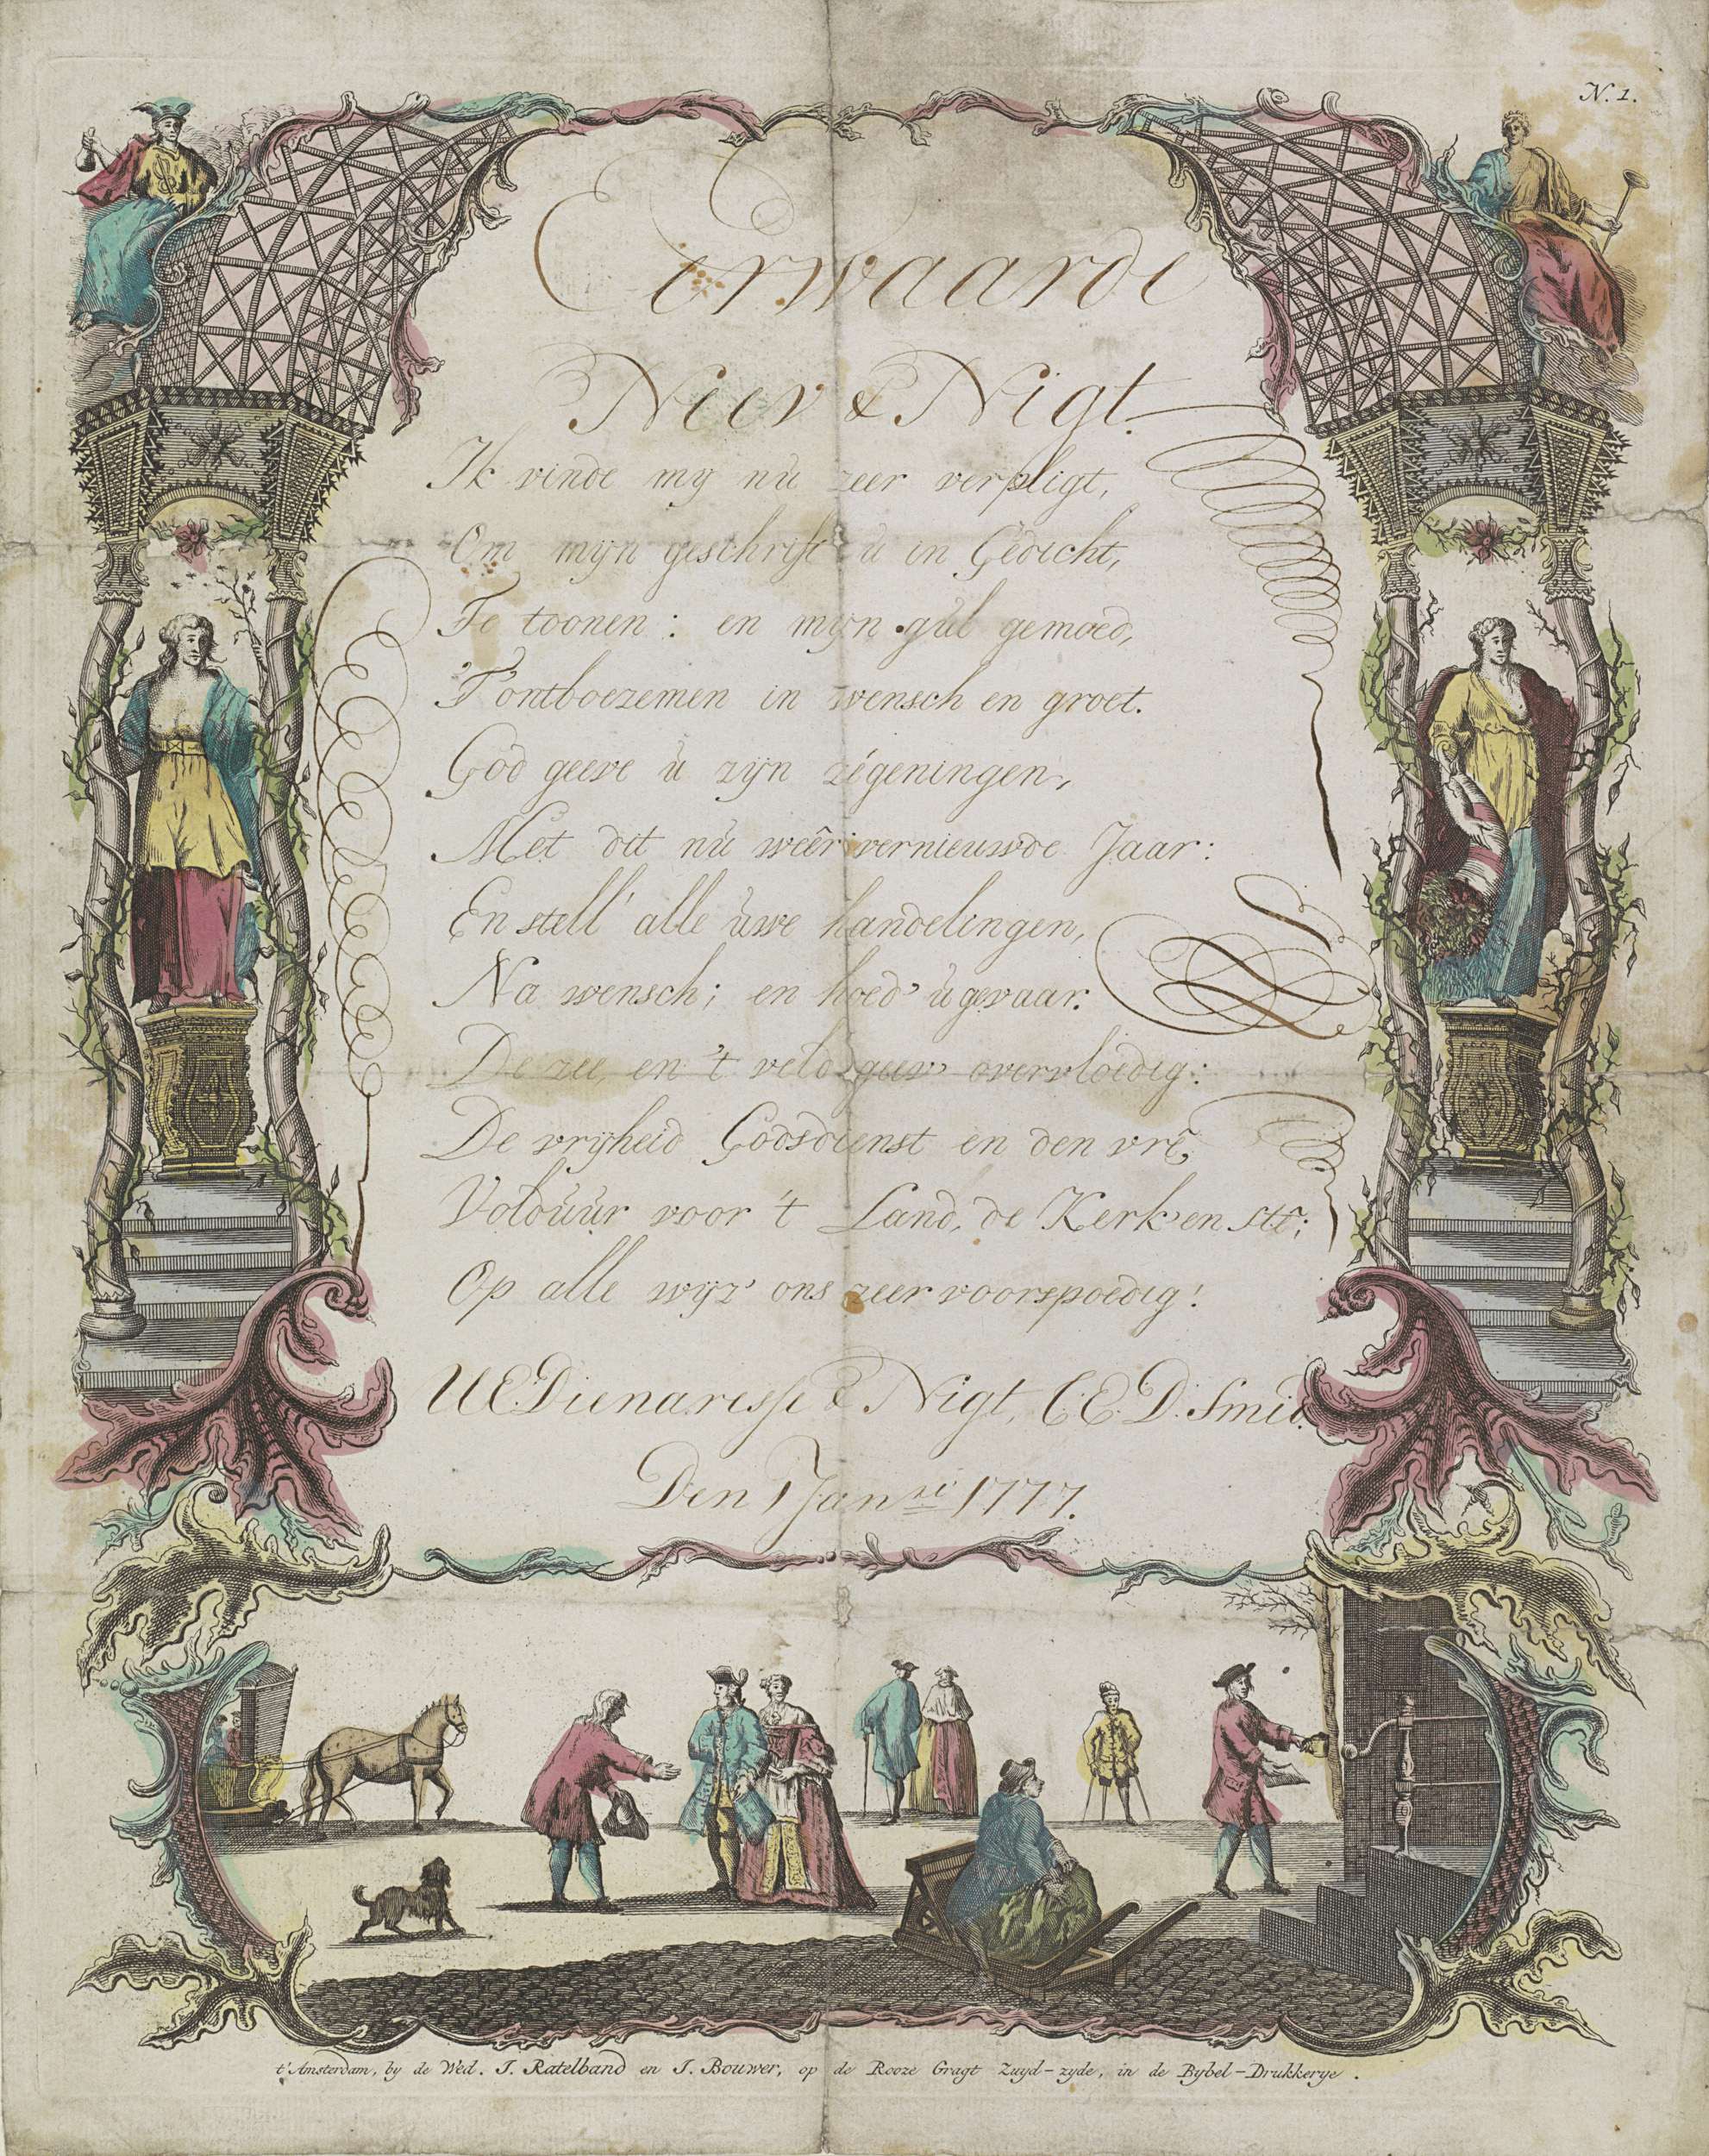 N. 1.
Eerwaarde
Neev & Nigt.
Ik vinde mij nu zeer verpligt,
Om mijn geschrift u in Gedicht,
Te toonen: en mijn gul gemoed,
T'ontboezemen in wensch en groet.
God geeve u zijn zégeningen,
Met dit nu weêr vernieuwde Jaar:
En stell' alle uwe handelingen,
Na wensch; en hoed' u gevaar.
De zee, en 't veld geev' overvloedig:
De vrijheid Godsdienst en den vrê,
Volduur voor 't Land, de Kerk en stê;
Op alle wijz' ons zeer voorspoedig!
UE Dienaresse & Nigt, C.E.D. Smit.
Den 1 Jan.ri 1777.
t'Amsterdam, by de Wed. J. Ratelband en J. Bouwer, op de Rooze Gragt Zuyd-zyde, in de Bybel-Drukkerye.